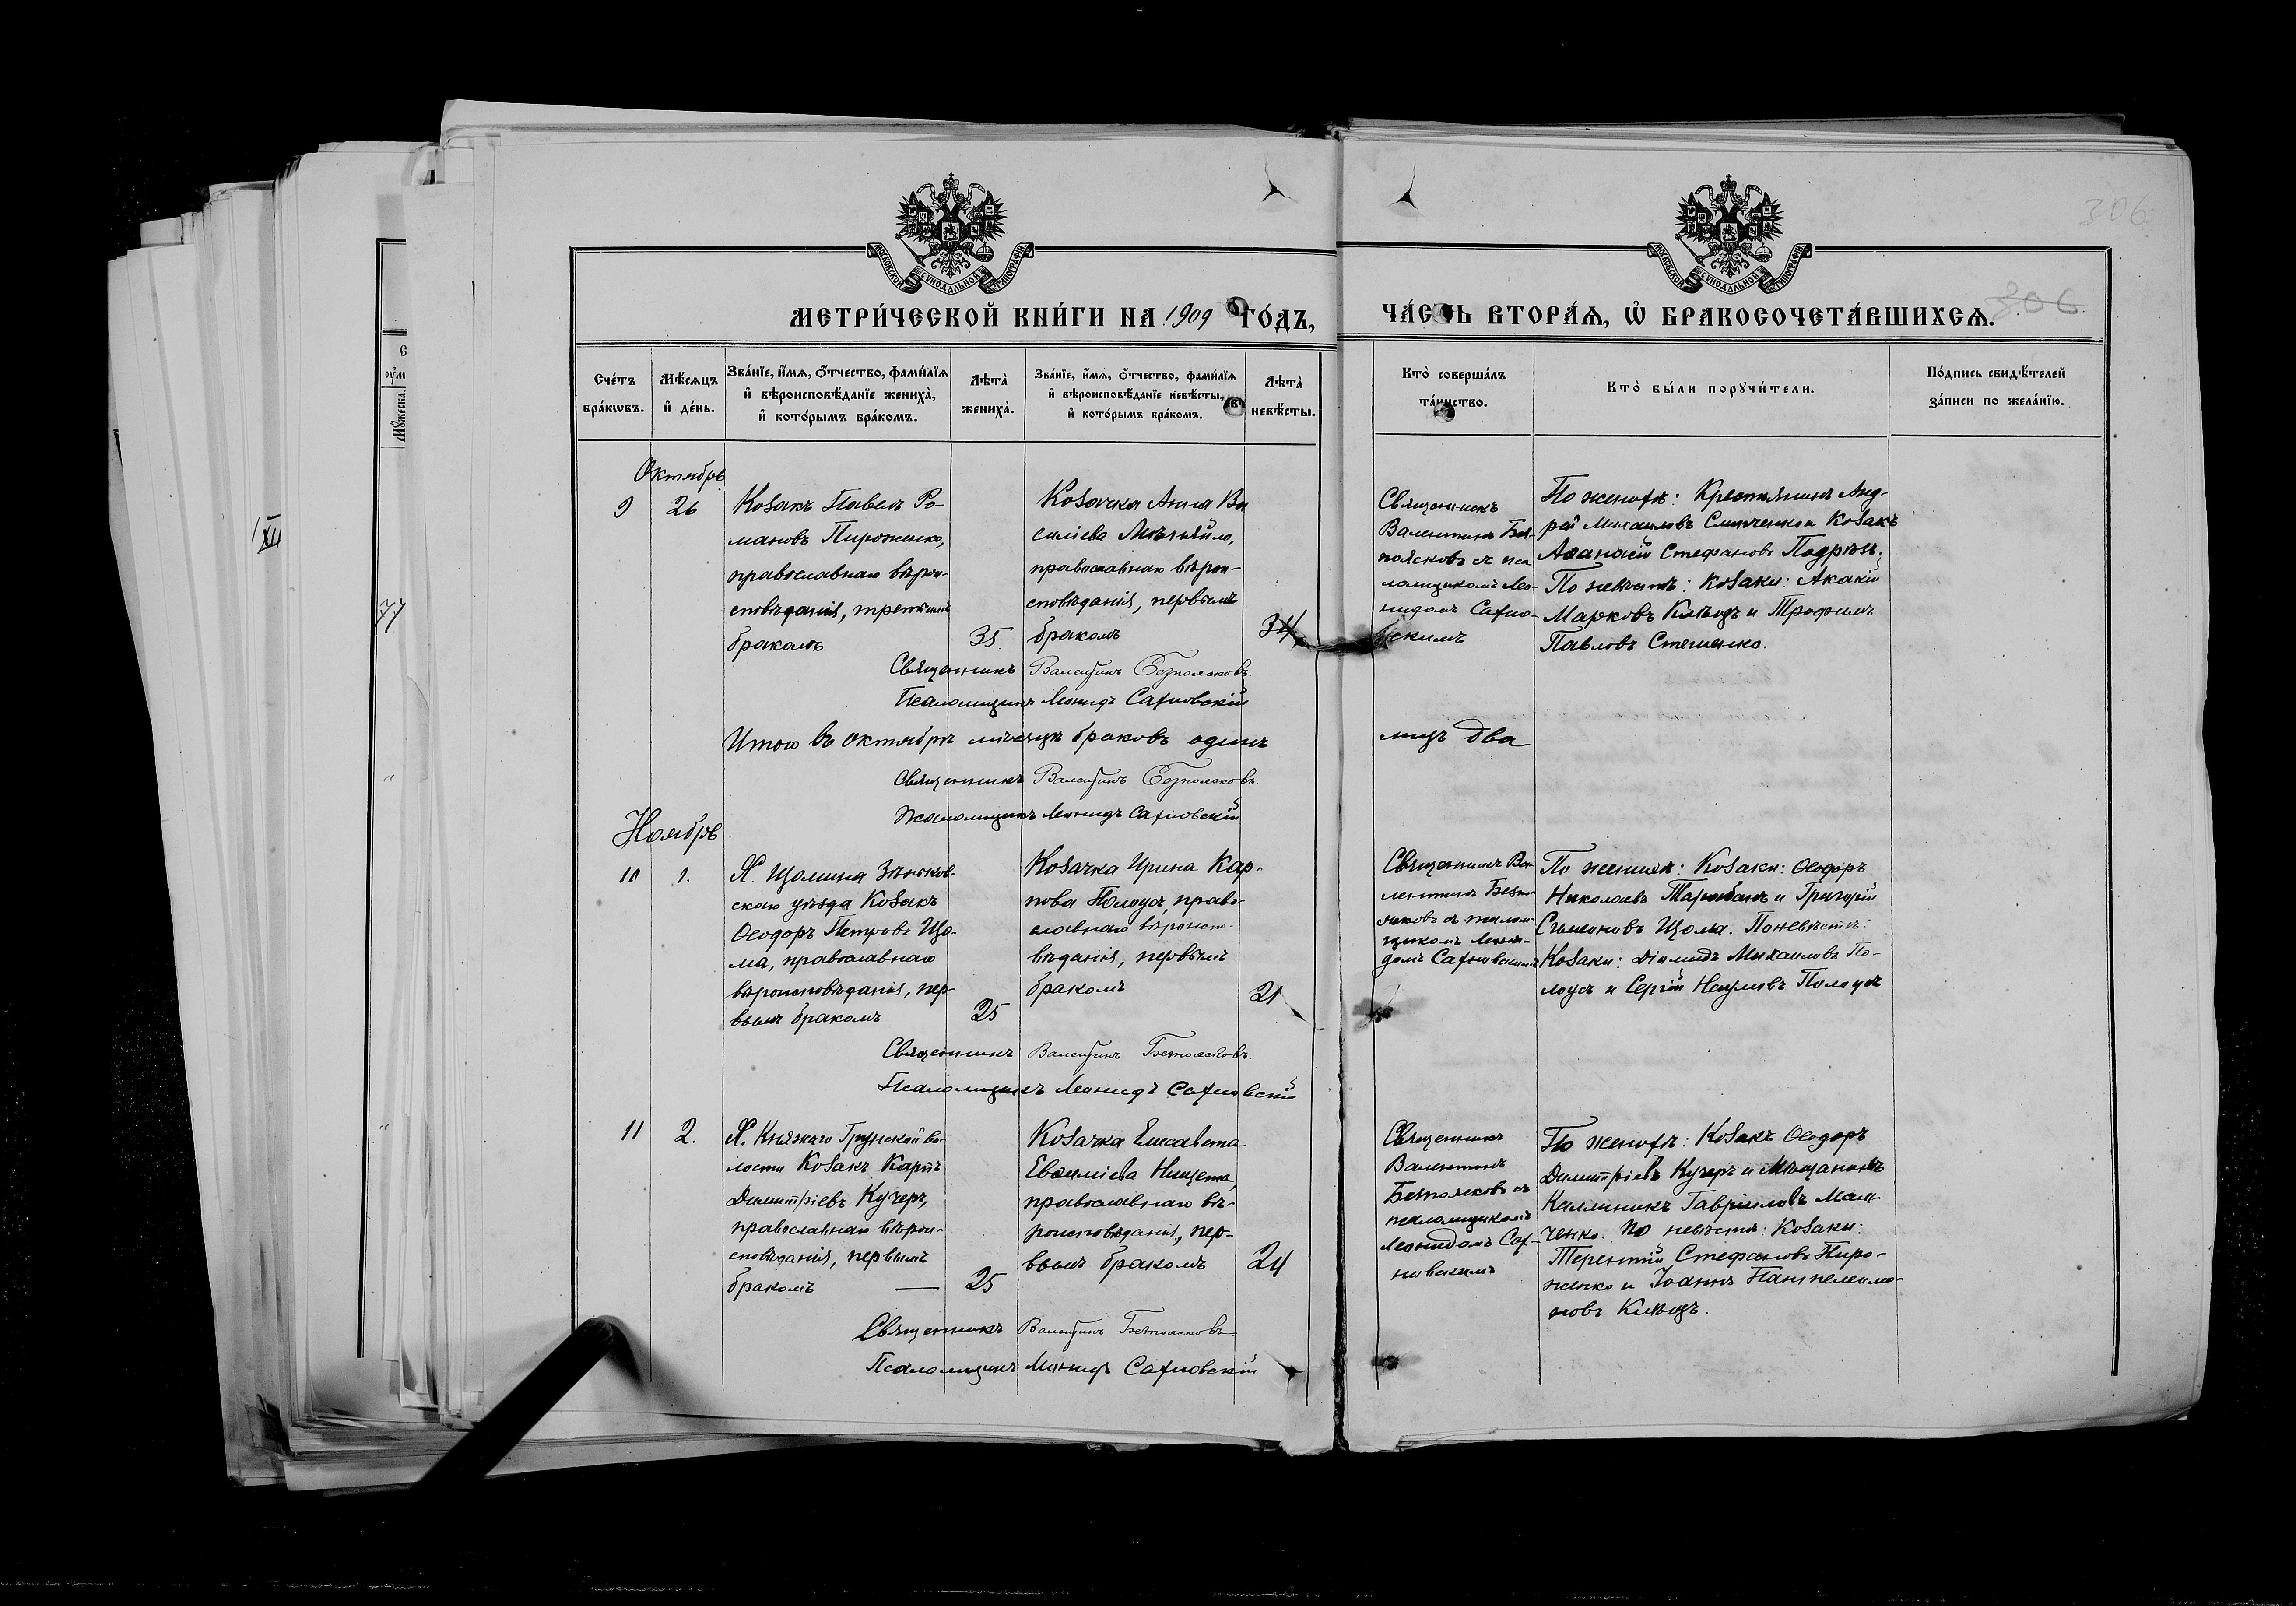 306
МОСКОВСКОЙ СѴНОДАЛЬНОЙ ТИПОГРАФІИ
МОСКОВСКОЙ СѴНОДАЛЬНОЙ ТИПОГРАФІИ
МЕТРИ́ЧЕСКОЙ КНИ́ГИ НА 1909 ГО́ДЪ,
ЧА́СТЬ ВТОРА́Ѧ, Ѡ҆ БРАКОСОЧЕТА́ВШИХСѦ.
306
Сче́тъ бра́кѡвъ.
Мѣ́сѧцъ и҆ де́нь.
Зва́нїе, и҆́мѧ, ѻ҆́тчество, фами́лїѧ и҆ вѣроисповѣ́данїе жениха̀, и҆ кото́рымъ бра́комъ.
Лѣта̀ жениха̀.
Зва́нїе, и҆́мѧ, ѻ҆́тчество, фами́лїѧ и҆ вѣроисповѣ́данїе невѣ́сты, и҆ кото́рымъ бра́комъ.
Лѣта̀ невѣ́сты.
Кто̀ соверша́лъ та́инство.
Кто̀ бы́ли порꙋчи́тели.
По́дпись свидѣ́телей за́писи по жела́нїю.
Октябрь
9
26
Козакъ Павелъ Ро-
мановъ Пироженко,
православнаго вѣрои-
сповѣданія, третьимъ
бракомъ
35.
Козачка Анна Ва
силіева
православнаго вѣрои-
сповѣданія, первымъ
бракомъ
34
Священникъ
Валентинъ Без-
поясковъ съ пса
ломщикомъ Лео-
нидомъ Сахно-
вскимъ
По женихѣ: Крестьянинъ Анд-
рей Михаиловъ Слинченко и Козакъ
Аѳанасій Стефановъ
По невѣстѣ: Козаки: Акакій
Марковъ Клѣвцъ и Трофимъ
Павловъ Стешенко.
Священникъ Валентинъ Безпоясковъ.
Псаломщикъ Леонидъ Сахновскій
Итого въ октябрѣ мѣсяцѣ браковъ одинъ
лицъ два
Священникъ Валентинъ Безпоясковъ.
Псаломщикъ Леонидъ Сахновскій
Ноябрь
10
1.
Х. Щомина Зѣньков-
скаго уѣзда Козакъ
Ѳеодоръ Петровъ Що-
ма, православнаго
вѣроисповѣданія, пер-
вымъ бракомъ
25
Козачка Ирина Кар-
пова Полоусъ, право-
славнаго вѣроиспо-
вѣданія, первымъ
бракомъ
21
Священникъ Ва-
лентинъ Безпо-
ясковъ съ псалом-
щикомъ Леони-
домъ Сахновскимъ
По женихѣ: Козаки: Ѳеодоръ
Николаевъ и Григорій
Сѵмеоновъ Щома. По невѣстѣ:
Козаки: Діомидъ Михаиловъ По-
лоусъ и Сергій Наумовъ Полоусъ
Священникъ Валентинъ Безпоясковъ.
Псаломщикъ Леонидъ Сахновскій
11
2.
Х. Княжаго Грунской во-
лости Козакъ Карпъ
Димитріевъ Кучеръ,
православнаго вѣрои-
сповѣданія, первымъ
бракомъ — 25
Козачка Елисавета
Евѳиміева Нищета,
православнаго вѣ-
роисповѣданія, пер-
вымъ бракомъ
24
Священникъ
Валентинъ
Безпоясковъ съ
псаломщикомъ
Леонидомъ Сах-
новскимъ
По женихѣ: Козакъ Ѳеодоръ
Димитріевъ Кучеръ и Мѣщанинъ
Каллиникъ Гавріиловъ
ченко. По невѣстѣ: Козаки:
Терентій Стефановъ Пиро-
женко и Іоаннъ Пантелеимо-
новъ Клѣвцъ.
Священникъ Валентинъ Безпоясковъ
Псаломщикъ Леонидъ Сахновскій
77